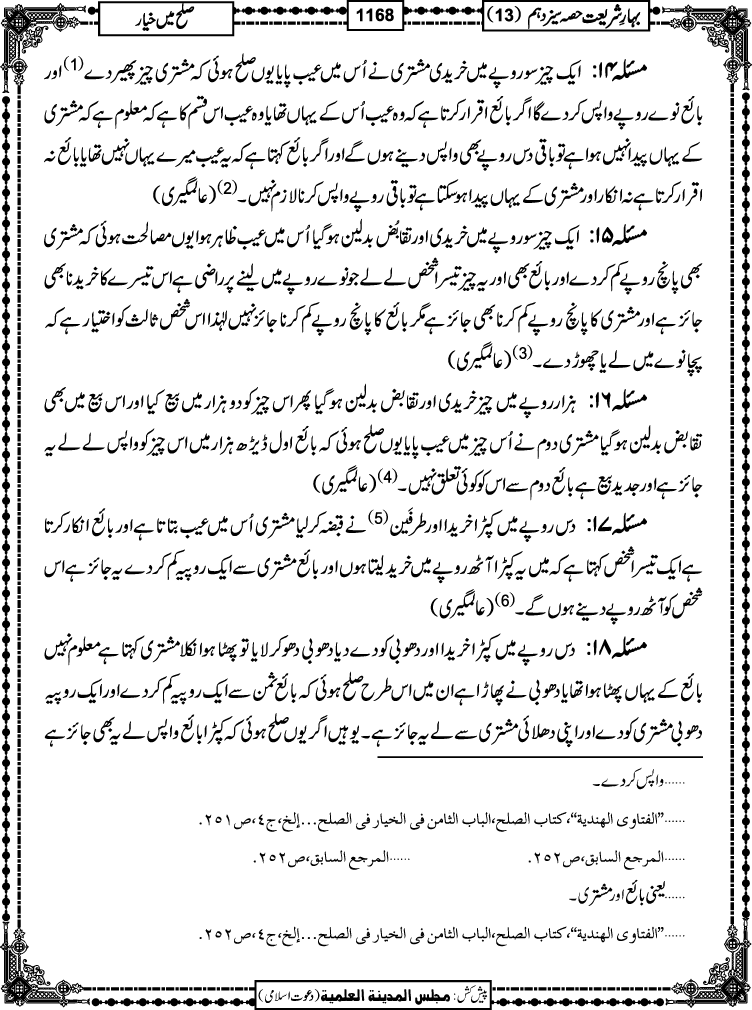 بہارِ شریعت حصہ سیزدہم (13)
1168
صلح میں خیار
مسئلہ ۱۴: ایک چیز سو روپے میں خریدی مشتری نے اُس میں عیب پایا یوں صلح ہوئی کہ مشتری چیز پھیر دے (1) اور
بائع نوے روپے واپس کردے گا اگر بائع اقرار کرتا ہے کہ وہ عیب اُس کے یہاں تھا یا وہ عیب اس قسم کا ہے کہ معلوم ہے کہ مشتری
کے یہاں پیدا نہیں ہوا ہے تو باقی دس روپے بھی واپس دینے ہوں گے اور اگر بائع کہتا ہے کہ یہ عیب میرے یہاں نہیں تھا یا بائع نہ
اقرار کرتا ہے نہ انکار اور مشتری کے یہاں پیدا ہوسکتا ہے تو باقی روپے واپس کرنا لازم نہیں۔ (2) (عالمگیری)
مسئلہ ۱۵: ایک چیز سو روپے میں خریدی اور تقابُض بدلین ہوگیا اُس میں عیب ظاہر ہوا یوں مصالحت ہوئی کہ مشتری
بھی پانچ روپے کم کردے اور بائع بھی اور یہ چیز تیسرا شخص لے لے جو نوے روپے میں لینے پر راضی ہے اس تیسرے کا خریدنا بھی
جائز ہے اور مشتری کا پانچ روپے کم کرنا بھی جائز ہے مگر بائع کا پانچ روپے کم کرنا جائز نہیں لہٰذا اس شخص ثالث کو اختیار ہے کہ
پچانوے میں لے یا چھوڑ دے۔ (3) (عالمگیری)
مسئلہ ۱۶: ہزار روپے میں چیز خریدی اور تقابض بدلین ہوگیا پھر اس چیز کو دو ہزار میں بیع کیا اور اس بیع میں بھی
تقابض بدلین ہوگیا مشتری دوم نے اُس چیز میں عیب پایا یوں صلح ہوئی کہ بائع اول ڈیڑھ ہزار میں اس چیز کو واپس لے لے یہ
جائز ہے اور جدید بیع ہے بائع دوم سے اس کو کوئی تعلق نہیں۔ (4) (عالمگیری)
مسئلہ ۱۷: دس روپے میں کپڑا خریدا اور طرفَین (5) نے قبضہ کرلیا مشتری اُس میں عیب بتاتا ہے اور بائع انکار کرتا
ہے ایک تیسرا شخص کہتا ہے کہ میں یہ کپڑا آٹھ روپے میں خرید لیتا ہوں اور بائع مشتری سے ایک روپیہ کم کردے یہ جائز ہے اس
شخص کو آٹھ روپے دینے ہوں گے۔ (6) (عالمگیری)
مسئلہ ۱۸: دس روپے میں کپڑا خریدا اور دھوبی کو دے دیا دھوبی دھو کر لایا تو پھٹا ہوا نکلا مشتری کہتا ہے معلوم نہیں
بائع کے یہاں پھٹا ہوا تھا یا دھوبی نے پھاڑا ہے ان میں اس طرح صلح ہوئی کہ بائع ثمن سے ایک روپیہ کم کردے اور ایک روپیہ
دھوبی مشتری کو دے اور اپنی دھلائی مشتری سے لے یہ جائز ہے۔ یوہیں اگر یوں صلح ہوئی کہ کپڑا بائع واپس لے یہ بھی جائز ہے
......واپس کردے۔
......"الفتاوى الهندية"، كتاب الصلح، الباب الثامن فى الخيار فى الصلح...إلخ، ج٤، ص٢٥١.
......المرجع السابق، ص٢٥٢. ......المرجع السابق، ص٢٥٢.
......یعنی بائع اور مشتری۔
......"الفتاوى الهندية"، كتاب الصلح، الباب الثامن فى الخيار فى الصلح...إلخ، ج٤، ص٢٥٢.
پیش کش: مجلس المدينة العلمية (دعوت اسلامی)